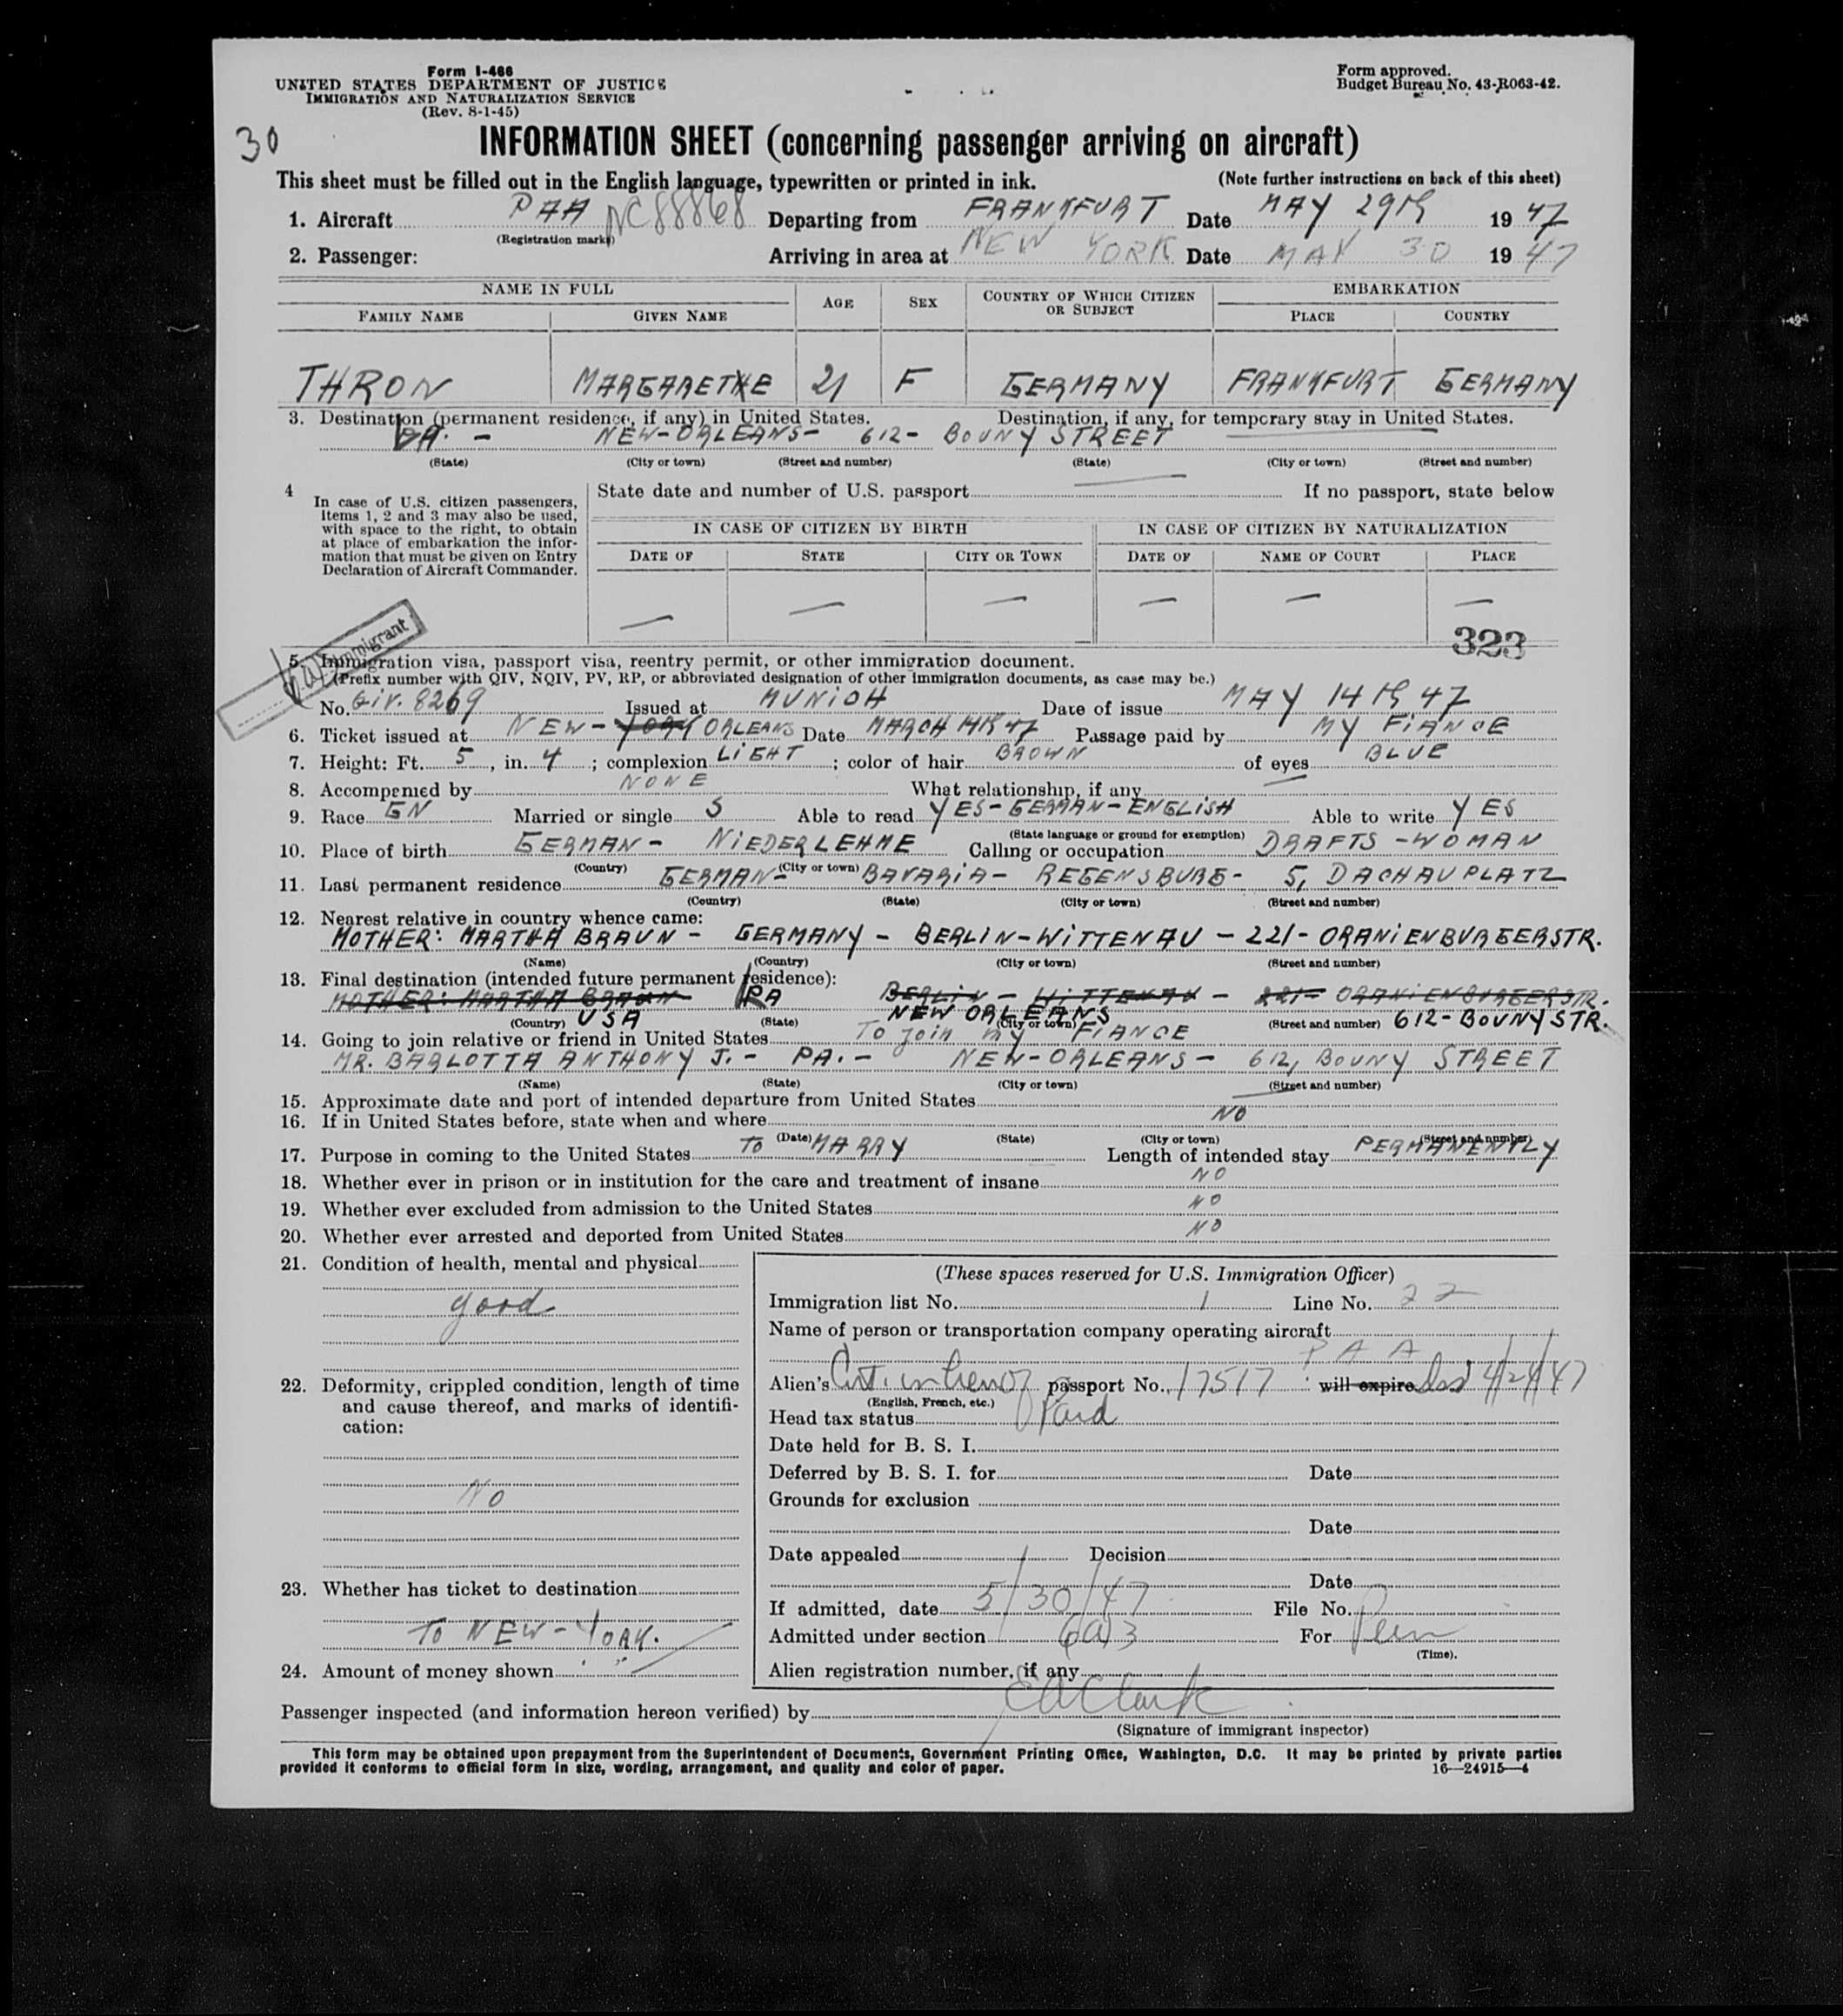 Form I-466
UNITED STATES DEPARTMENT OF JUSTICE
IMMIGRATION AND NATURALIZATION SERVICE
(Rev. 8-1-45)
Form approved.
Budget Bureau No. 43-R063-42.
30
INFORMATION SHEET (concerning passenger arriving on aircraft)
This sheet must be filled out in the English language, typewritten or printed in ink. (Note further instructions on back of this sheet)
1. Aircraft PAA NC88868 Departing from FRANKFURT Date MAY 29th 1947
(Registration marks)
2. Passenger: Arriving in area at NEW YORK Date MAY 30 1947
NAME IN FULL AGE SEX COUNTRY OF WHICH CITIZEN OR SUBJECT EMBARKATION
FAMILY NAME GIVEN NAME PLACE COUNTRY
THRON MARGARETHE 21 F GERMANY FRANKFURT GERMANY
3. Destination (permanent residence, if any) in United States. Destination, if any, for temporary stay in United States.
NEW-ORLEANS- 612- BOUNY STREET
(State) (City or town) (Street and number) (State) (City or town) (Street and number)
4 In case of U.S. citizen passengers, items 1, 2 and 3 may also be used, with space to the right, to obtain at place of embarkation the information that must be given on Entry Declaration of Aircraft Commander.
State date and number of U.S. passport If no passport, state below
IN CASE OF CITIZEN BY BIRTH IN CASE OF CITIZEN BY NATURALIZATION
DATE OF STATE CITY OR TOWN DATE OF NAME OF COURT PLACE
— — — — — —
323
Immigrant
5. Immigration visa, passport visa, reentry permit, or other immigration document.
(Prefix number with QIV, NQIV, PV, RP, or abbreviated designation of other immigration documents, as case may be.)
No. GiV. 8269 Issued at MUNICH Date of issue MAY 14th 47
6. Ticket issued at NEW-YORK ORLEANS Date MARCH 14th 47 Passage paid by MY FIANCE
7. Height: Ft. 5, in. 4; complexion LIGHT; color of hair BROWN of eyes BLUE
8. Accompanied by NONE What relationship, if any —
9. Race GN Married or single S Able to read YES-GERMAN-ENGLISH Able to write YES
(State language or ground for exemption)
10. Place of birth GERMAN- NIEDERLEHME Calling or occupation DRAFTS-WOMAN
(Country) (City or town)
11. Last permanent residence GERMAN- BAVARIA- REGENSBURG- 5, DACHAUPLATZ
(Country) (State) (City or town) (Street and number)
12. Nearest relative in country whence came:
MOTHER: MARTHA BRAUN - GERMANY - BERLIN-WITTENAU - 221- ORANIENBURGERSTR.
(Name) (Country) (City or town) (Street and number)
13. Final destination (intended future permanent residence):
MOTHER: MARTHA BRAUN BERLIN - WITTENAU - 221- ORANIENBURGERSTR.
USA NEW ORLEANS 612- BOUNY STR.
(Country) (State) (City or town) (Street and number)
14. Going to join relative or friend in United States To join my FIANCE
MR. BARLOTTA ANTHONY J. - PA. - NEW-ORLEANS- 612, BOUNY STREET
(Name) (State) (City or town) (Street and number)
15. Approximate date and port of intended departure from United States —
16. If in United States before, state when and where NO
(Date) (State) (City or town) (Street and number)
17. Purpose in coming to the United States TO MARRY Length of intended stay PERMANENTLY
18. Whether ever in prison or in institution for the care and treatment of insane NO
19. Whether ever excluded from admission to the United States NO
20. Whether ever arrested and deported from United States NO
21. Condition of health, mental and physical
good
22. Deformity, crippled condition, length of time and cause thereof, and marks of identification:
NO
23. Whether has ticket to destination
TO NEW-YORK.
24. Amount of money shown
(These spaces reserved for U.S. Immigration Officer)
Immigration list No. 1 Line No. 22
Name of person or transportation company operating aircraft
PAA
Alien's passport No. 17517 will expire 4/24/47
(English, French, etc.)
Head tax status Paid
Date held for B. S. I.
Deferred by B. S. I. for Date
Grounds for exclusion
Date
Date appealed Decision
Date
If admitted, date 5/30/47 File No.
Admitted under section 6(a)3 For Perm
(Time).
Alien registration number, if any
Passenger inspected (and information hereon verified) by EA Clark
(Signature of immigrant inspector)
This form may be obtained upon prepayment from the Superintendent of Documents, Government Printing Office, Washington, D.C. It may be printed by private parties
provided it conforms to official form in size, wording, arrangement, and quality and color of paper. 16—24915—4